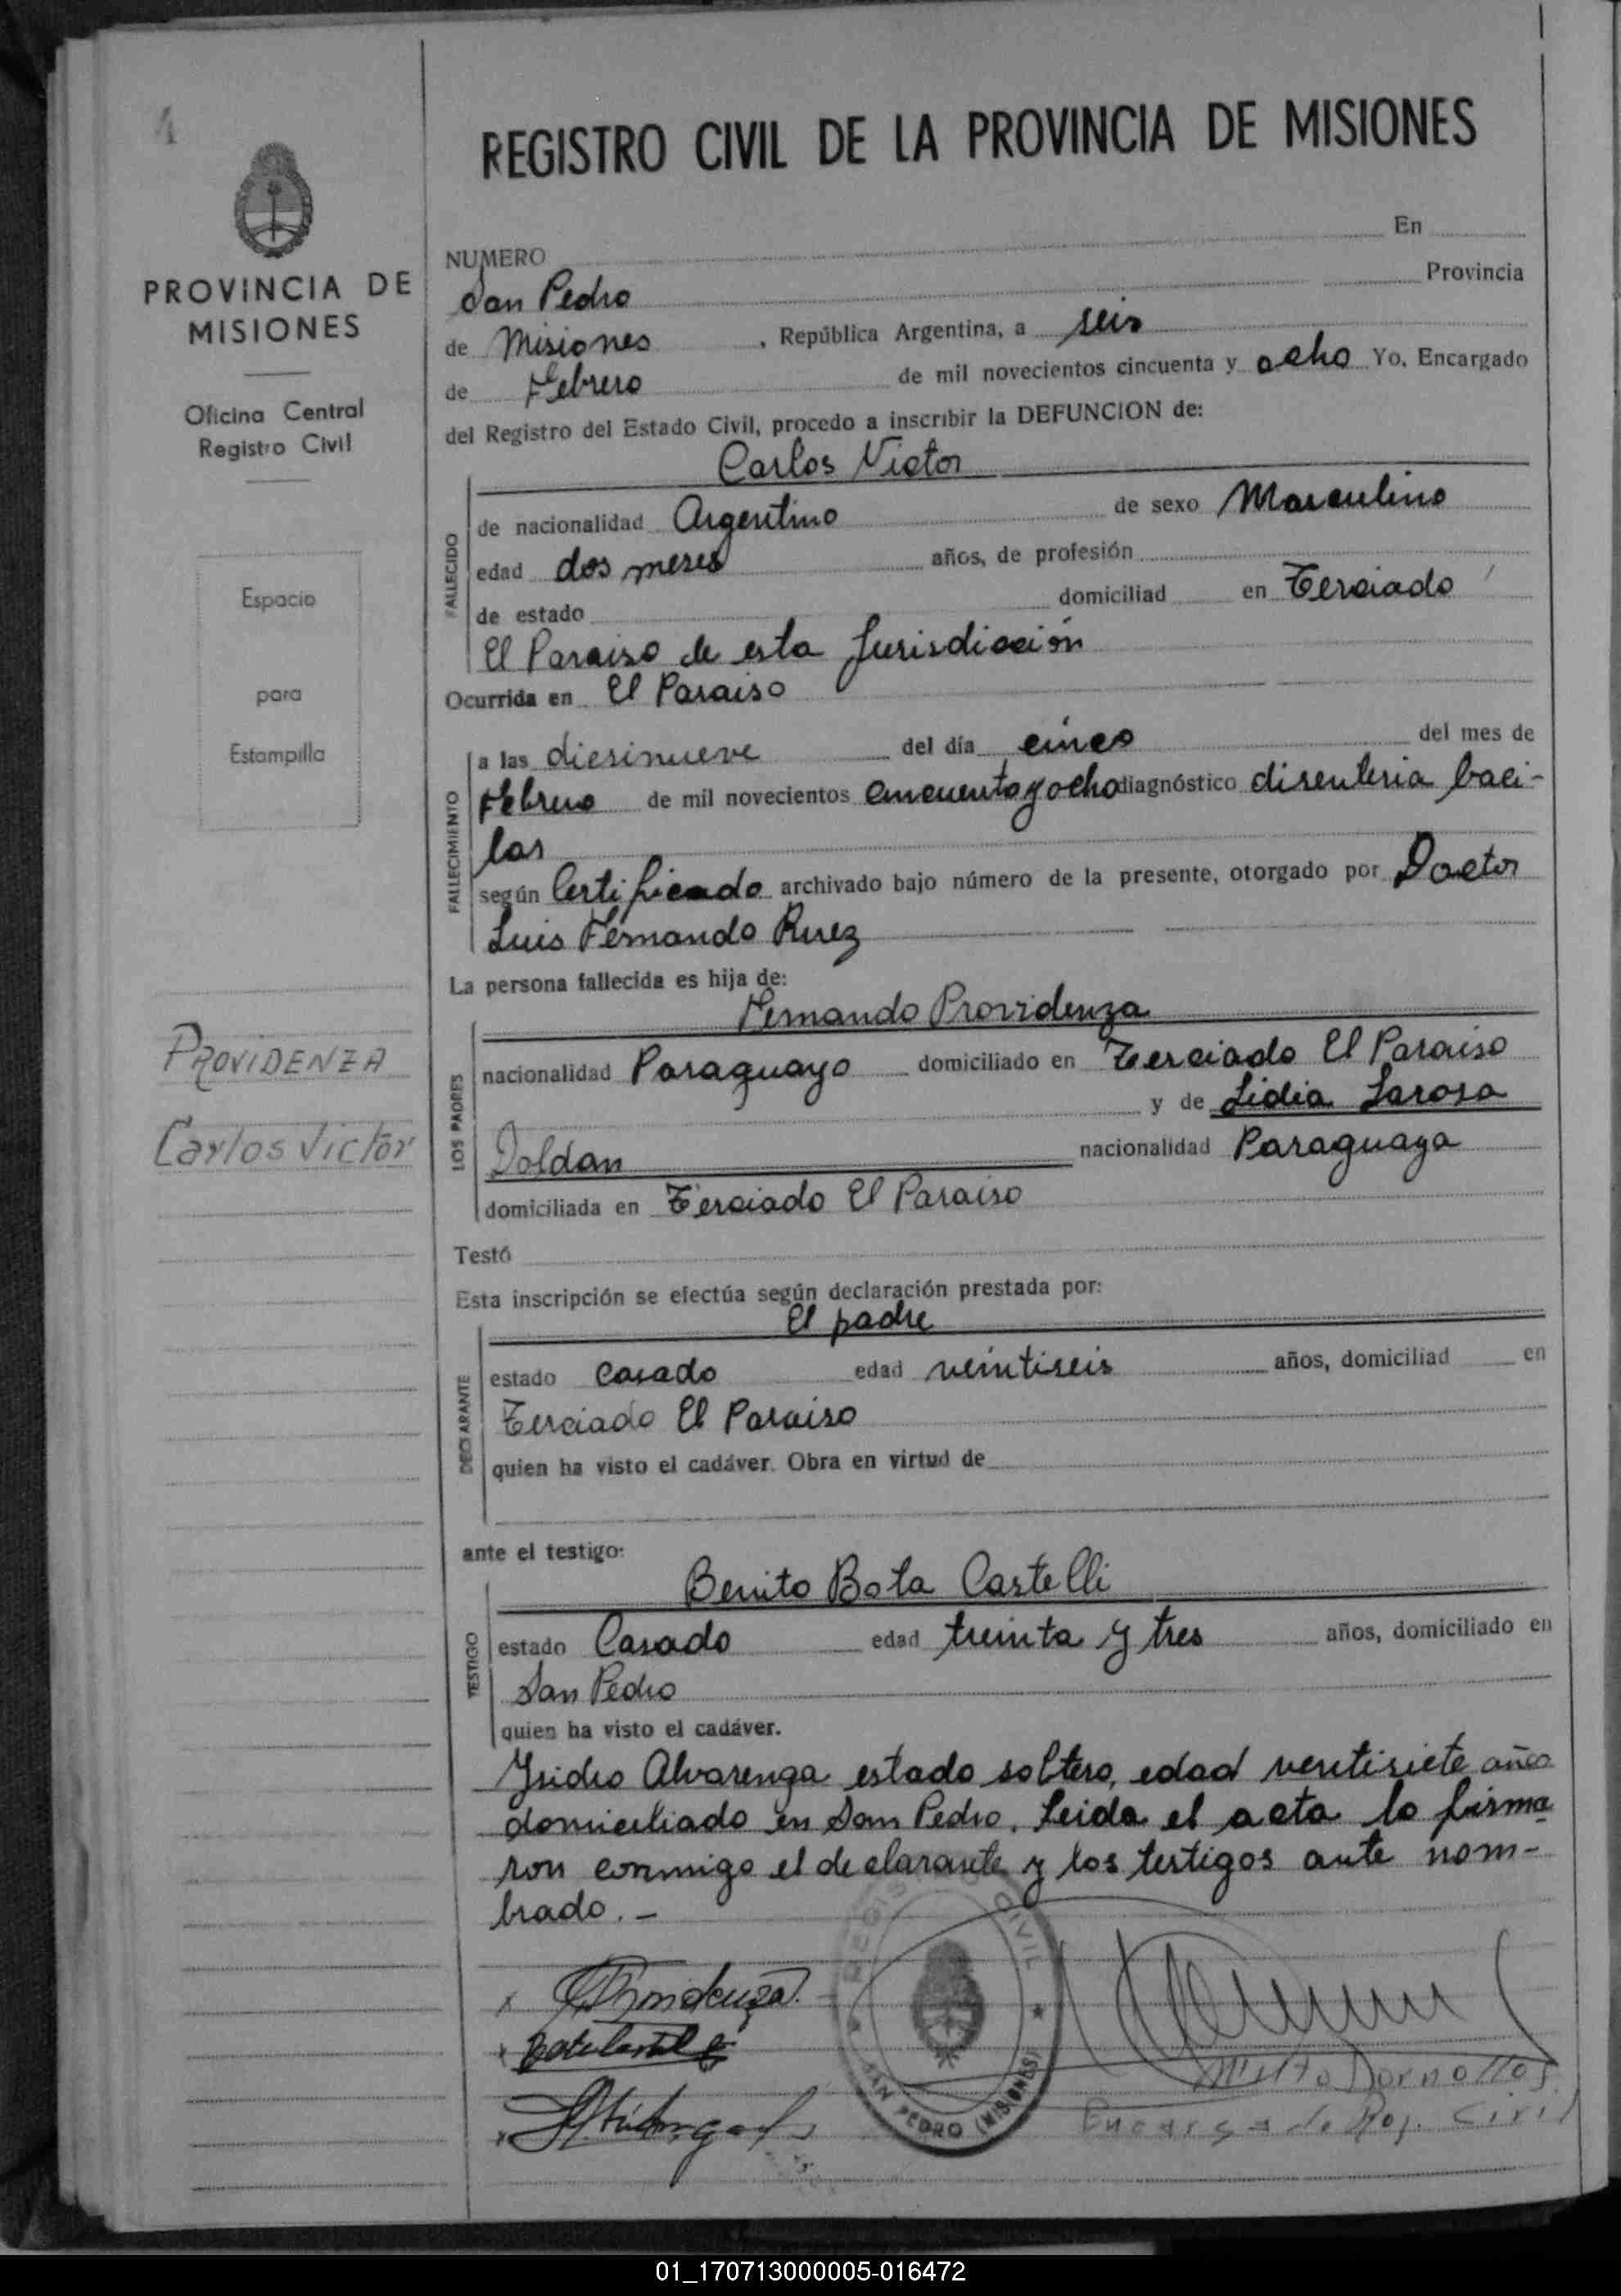 4
PROVINCIA DE
MISIONES
Oficina Central
Registro Civil
Espacio
para
Estampilla
PROVIDENZA
Carlos Victor
REGISTRO CIVIL DE LA PROVINCIA DE MISIONES
NUMERO En
San Pedro Provincia
de Misiones , República Argentina, a seis
de Febrero de mil novecientos cincuenta y ocho Yo, Encargado
del Registro del Estado Civil, procedo a inscribir la DEFUNCION de:
Carlos Victor
FALLECIDO
de nacionalidad Argentino de sexo Masculino
edad dos meses años, de profesión
de estado domiciliad en Terciado
El Paraiso de esta Jurisdicción
Ocurrida en El Paraiso
FALLECIMIENTO
a las diesinueve del día cinco del mes de
Febrero de mil novecientos cincuenta y ocho diagnóstico disenteria baci-
lar
según Certificado archivado bajo número de la presente, otorgado por Doctor
Luis Fernando Ruez
La persona fallecida es hija de:
Fernando Providenza
LOS PADRES
nacionalidad Paraguayo domiciliado en Terciado El Paraiso
y de Lidia Larosa
Doldan nacionalidad Paraguaya
domiciliada en Terciado El Paraiso
Testó
Esta inscripción se efectúa según declaración prestada por:
El padre
DECLARANTE
estado casado edad veintiseis años, domiciliad en
Terciado El Paraiso
quien ha visto el cadáver. Obra en virtud de
ante el testigo:
Benito Bota Castelli
TESTIGO
estado Casado edad treinta y tres años, domiciliado en
San Pedro
quien ha visto el cadáver.
Ysidro Alvarenga estado soltero, edad ventisiete años
domiciliado en San Pedro. Leida el acta lo firma
ron conmigo el declarante y los testigos ante nom-
brado. -
Providenza
REGISTRO CIVIL
SAN PEDRO (MISIONES)
Encargado Reg. Civil
01_170713000005-016472